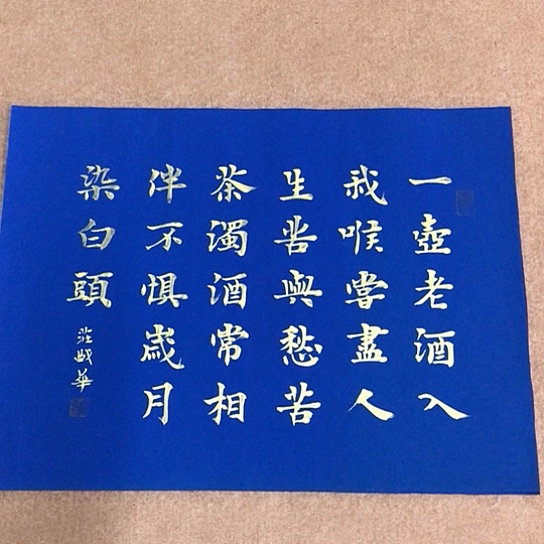 一壺老酒入
我喉嘗盡人
生苦與愁苦
茶濁酒常相
伴不懼歲月
染白頭
莊 華